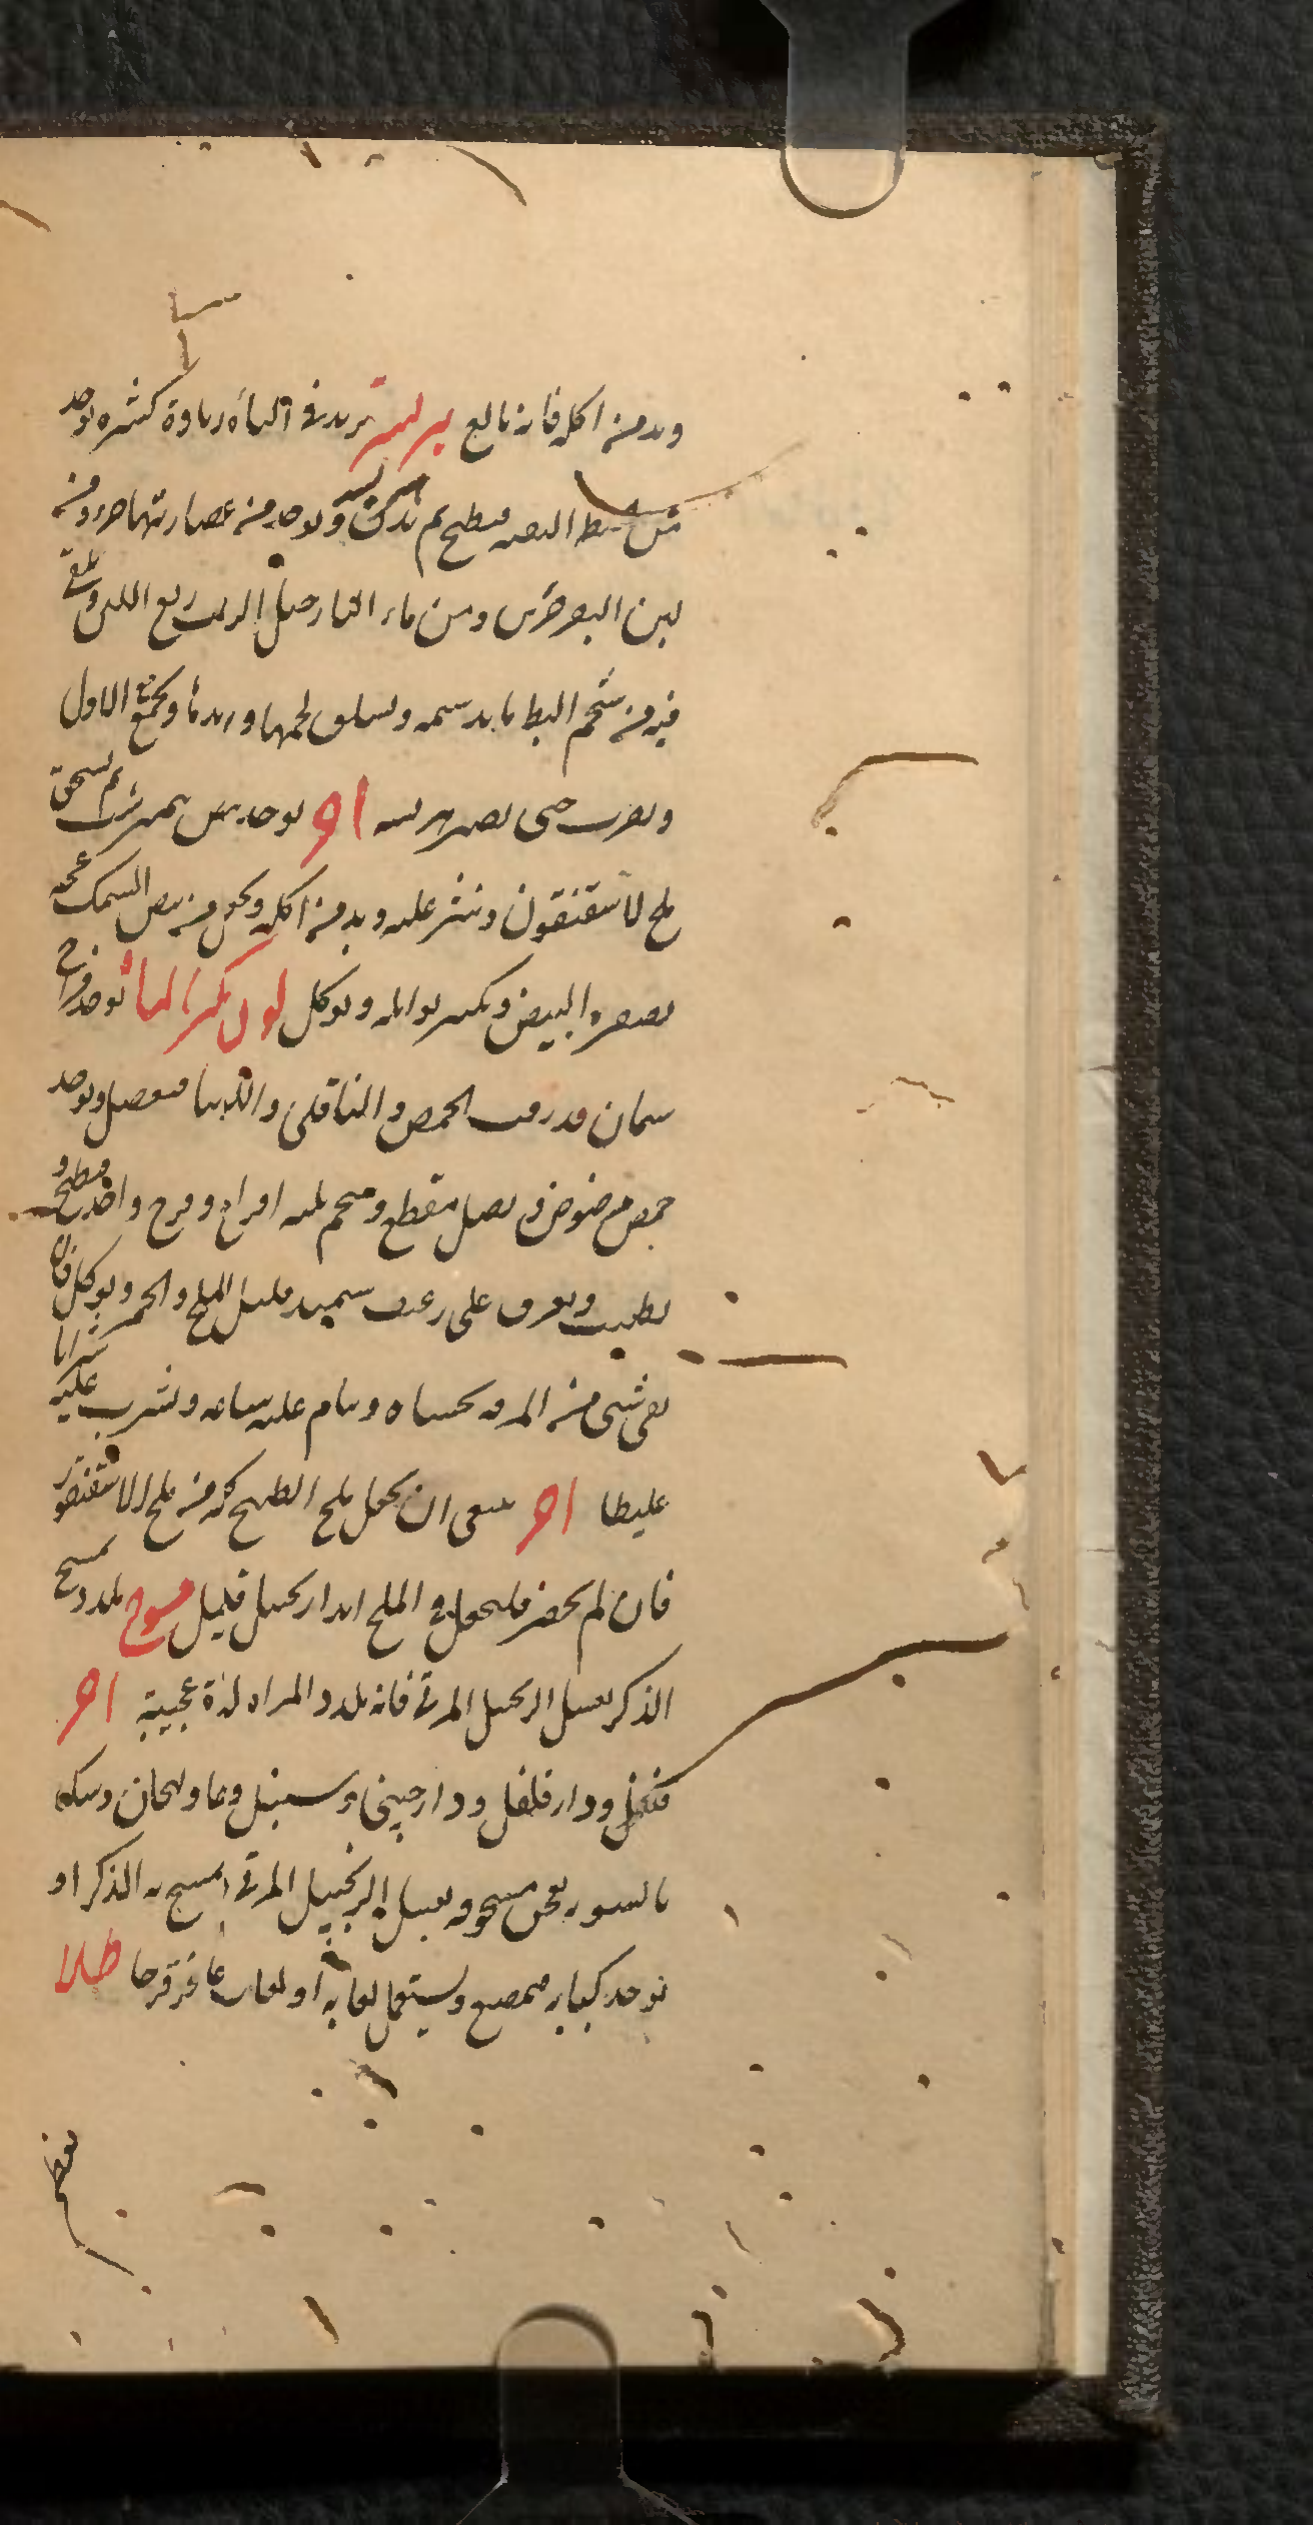 ويدمن اكله فانه نافع يزيد في الباه زيادة كثيره يوخذ
من الحنطه البيض فيطبخ ثم ويوخذ من عصارتها جزء ومن
لبن البقر جزءين ومن ماء النارجيل الرطب ربع اللبن ويلقى
فيه من شحم البط ما يدسمه ويسلق لحمها ويدق ويجمع الاول
ويضرب حتى يصير هريسه او يوخذ بيض ثم يسحق
ملح الاسقنقور وينثر عليه ويدمن اكله ويحل من بيض السمك
بصفره البيض ويكثر توابله ويوكل لون يكثر الماء يوخذ فراخ
سمان قد زقت الحمص والباقلى واللوبيا فتفصل ويوخذ
حمص مرضوض وبصل مقطع وشحم ثلثه افراخ وفرخ واحد فيطبخ و
يطيب ويغرف على رغيف سميد قليل الملح والخمير ويوكل فان
بقى شى من المرقه تحساه وينام عليه ساعه ويشرب عليه شرابا
غليظا اخر ينبغى ان يجعل ملح الطبيخ كله من ملح الاسقنقور
فان لم يحضر فليجعل في الملح ابدا زنجبيل قليل مسوح يلذذ يمسح
الذكر بعسل الزنجبيل المربى فانه يلذذ المراه لذة عجيبة اخر
فلفل ودار فلفل ودارجينى وسنبل وخاولنجان وسك
بالسويه يعجن مسحوقه بعسل الزنجبيل المربى يمسح به الذكر او
يوخذ كبابه فتمضغ ويستعمل لعابه او لعاب عاقرقرحا طلا